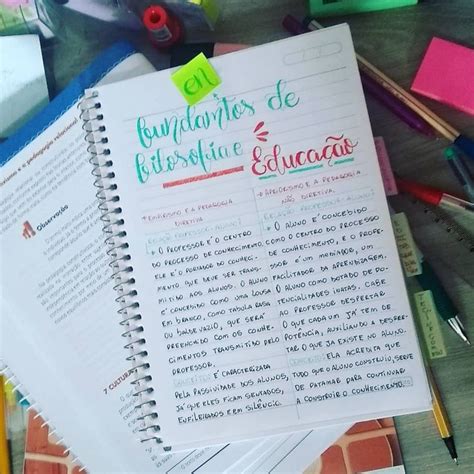 en
fundamentos de
filosofia e Educação
EMPIRISMO E A PEDAGOGIA
DIRETIVA
RELAÇÃO PROFESSOR-ALUNO:
O PROFESSOR É O CENTRO
DO PROCESSO DE CONHECIMENTO,
ELE É O PORTADOR DO CONHECI-
MENTO QUE DEVE SER TRANS-
MITIDO AOS ALUNOS. O ALUNO
É CONCEBIDO COMO UMA LOUSA
EM BRANCO, COMO TABULA RASA
OU BALDE VAZIO, QUE SERÁ
PREENCHIDO COM OS CONHE-
CIMENTOS TRANSMITIDO PELO
PROFESSOR.
CONCEITO: É CARACTERIZADA
PELA PASSIVIDADE DOS ALUNOS,
JÁ QUE ELES FICAM SENTADOS,
ENFILEIRADOS E EM SILÊNCIO.
APRIORISMO E A PEDAGOGIA
NÃO DIRETIVA.
RELAÇÃO PROFESSOR-ALUNO:
O ALUNO É CONCEBIDO
COMO O CENTRO DO PROCESSO
DE CONHECIMENTO, E O PROFE-
SSOR É UM MEDIADOR, UM
FACILITADOR DA APRENDIZAGEM.
O ALUNO COMO DOTADO DE PO-
TENCIALIDADES INATAS. CABE
AO PROFESSOR DESPERTAR
O QUE CADA UM JÁ TEM DE
POTÊNCIA, AUXILIANDO A DESPER-
TAR O QUE JÁ EXISTE NO ALUNO.
CONCEITO: ELA ACREDITA QUE
TUDO QUE O ALUNO CONSTRUIU, SERVE
DE PATAMAR PARA CONTINUAR
A CONSTRUIR O CONHECIMENTO.
e a pedagogia relacional
Observação
7 CULTURA